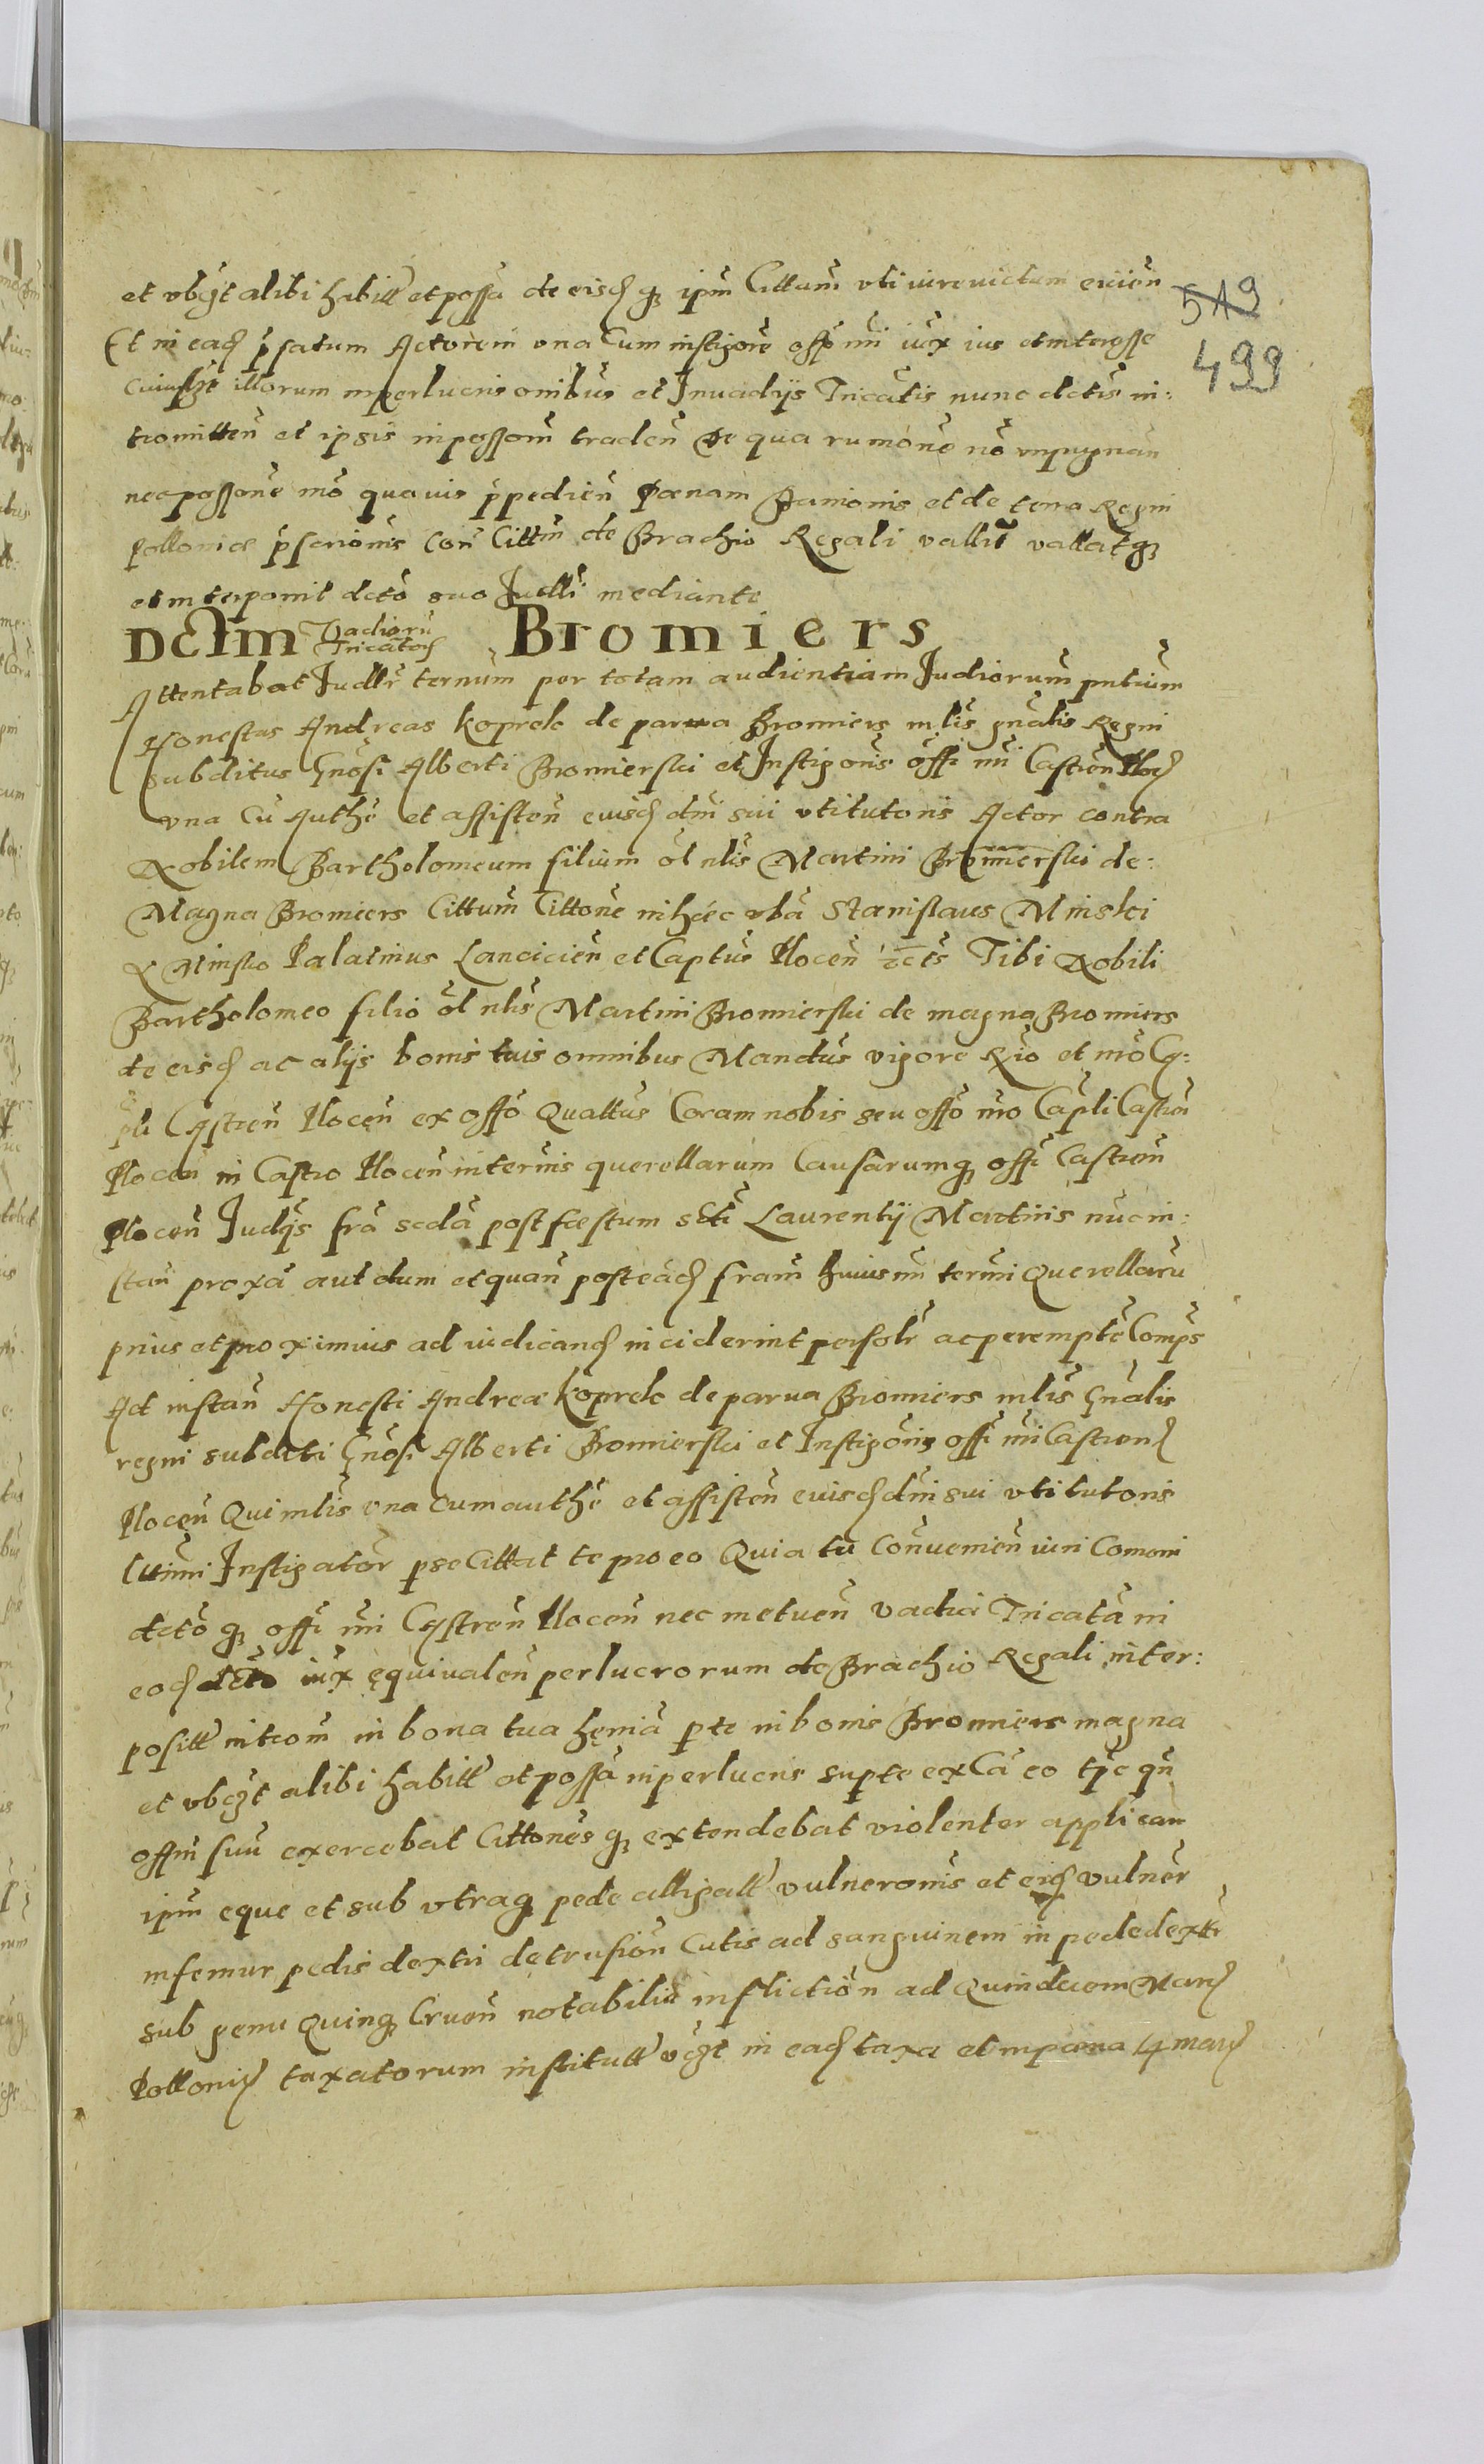 et vbqt alibi habitt et possa de eisd q ipm Cittam vti iure victum eiicien
Et in ead psatum Actorem vna Cum instigore offi nri iux ius et interesse
cuiuslzt illorum in perlucris omibus et Invadijs Tricatis nunc dctis in:
tromitten et ipsis in possom traden De qua rumone no impugnan
nec possone mo quouis ppedien Pœnam Banionis et de terra Regni
Polloniæ pscrionis Con Cittm de Brachio Regali vallit vallatq
et interponit dcto suo Iudlli mediante
Dctm Vadioru Tricatoq Bromiers
Attentabat Iudlr ternum per totam audientiam Iudiorum pntium
Honestus Andreas Koprek de parua Bromiers mlis gnalis Regni
subditus Gnosi Alberti Bromierski et Instigoris offi nri Castren Plocq
vna Cu Authe et assisten eiusd dni sui vti tutoris Actor contra
Nobilem Bartholomeum filium ol nlis Martini Bromierski de:
Magna Bromiers Cittum Cittone in hæc vba Stanislaus Minski
de Minsko Palatinus Lancicien et Captus Plocen etcts Tibi Nobili
Bartholomeo filio ol nlis Martini Bromierski de magna Bromiers
de eisd ac alijs bonis tuis omnibus Mandus vigore Rio et mo Ca:
pli Castren Plocen ex offo Quattus Coram nobis seu offo nro Capli Castren
Plocen in Castro Plocen in ternis querellarum Causarumq offi Castren
Plocen Iudijs fra scda post fœstum scti Laurentij Martiris nuc in:
stan proxa aut dum et quan posteaq fram huiusmi termi Querellaru
prius et proximius ad iudicand inciderint persolr ac perempte Comps
Ad instan Honesti Andreæ Koprek de parua Bromiers mlis Gnalis
regni subditi Gnosi Alberti Bromierski et Instigoris offi nri Castrend
Plocen Qui mlis vna cum authe et assisten eiusd dni sui vti tutoris
Instigator pse Cittat te pro eo Quia tu Conuenien iuri Comoni
dcto q offi nri Castren Plocen nec metuen vadia Tricata in
eod dcto iux equiualen perlucrorum de Brachio Regali inter:
positt introm in bona tua henia p te in bonis Bromiers magna
et vbqt alibi habitt et possa in perlucris supte ex Ca eo tpe qn
offm suu exercebat Cittones q extendebat violenter applican
ipm eque et sub vtraq pede alligatt vulneronis et eiq vulner
in femur pedis dextri detrusion Cutis ad sanguinem in pede dextr
sub genu Quinq Cruen notabiliu infliction ad Quindecem Marq
Polloniq taxatorum institutt vqt in ead taxa et in pœna 14 marq
519
499